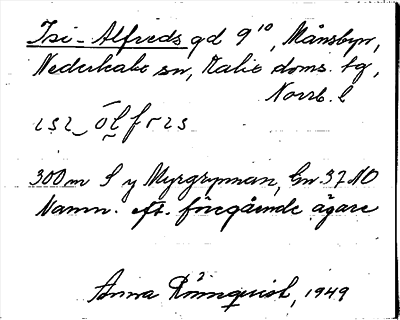 Isi-Alfreds gd 9¹⁰, Månsbyn,
Nederkalix sn, Kalix doms. tg,
Norrb. l
300 m S y Myrgrynnan, Gn. 37 NO
Namn. eft. föregående ägare
Anna Rönnquist, 1949